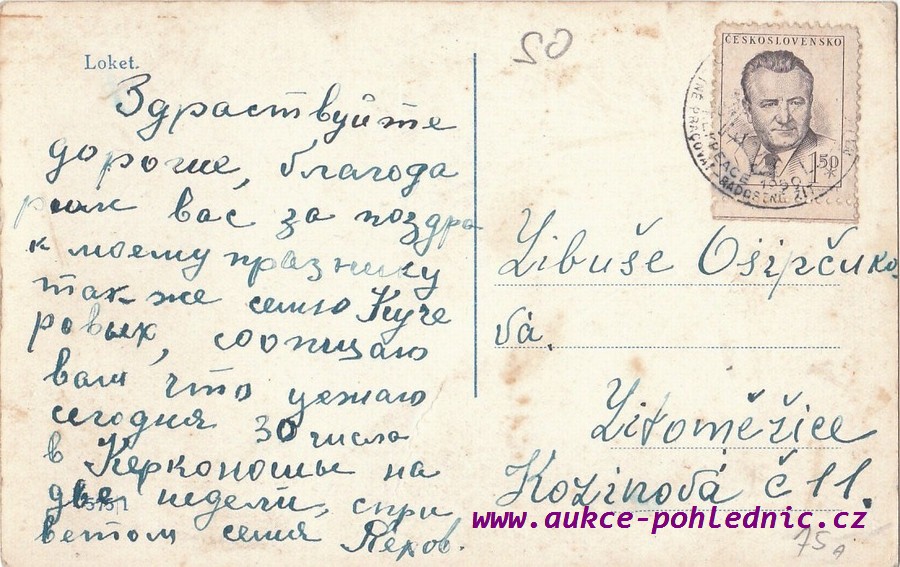 Loket.
Здраствуйте
дорогие, благода
вас за поздра
к моему празнику
так же семю Куче
ровых, сообщаю
вам что уежаю
сегодня 30 числа
в Керконошы на
две недели, спри
ветом семя Керов.
ČESKOSLOVENSKO
1.50
PRACOVAT - RADOSTNĚ ŽÍT
Libuše Osipčuko
vá.
Litoměžice
Kozinová č 11.
www.aukce-pohlednic.cz
75